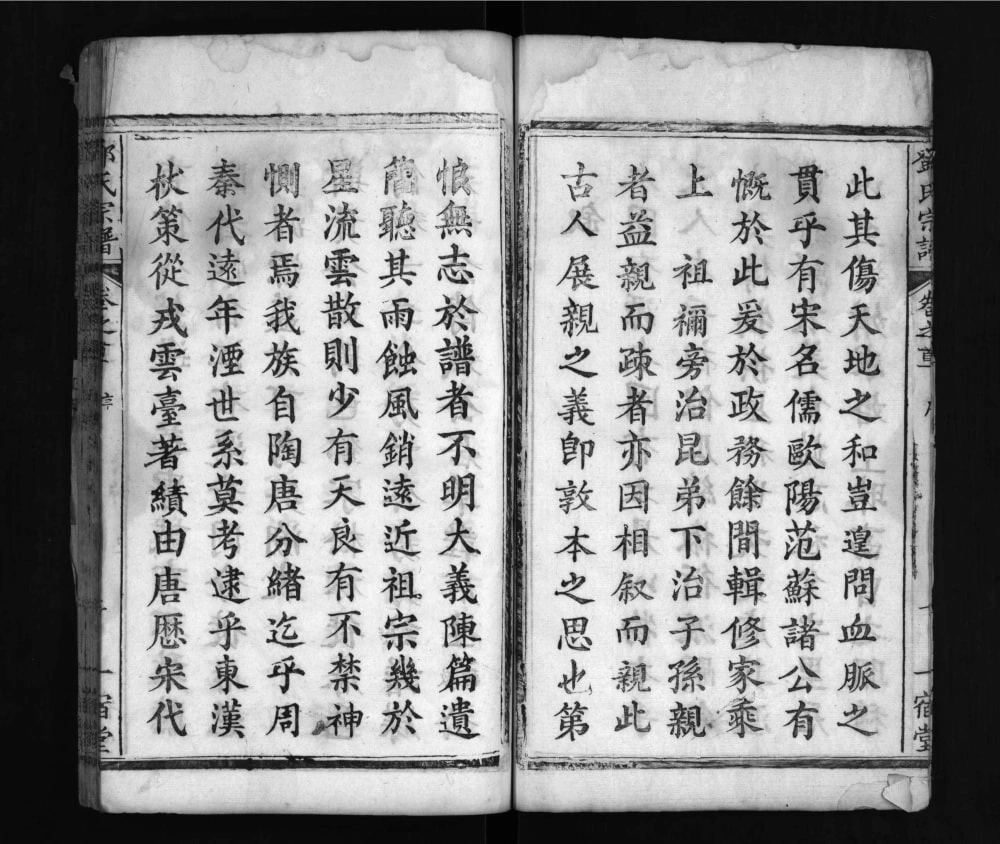 鄧氏宗譜
卷之首
序
一宿堂
此其傷天地之和豈遑問血脈之
貫乎有宋名儒歐陽范蘇諸公有
慨於此爰於政務餘間輯修家乘
上祖禰旁治昆弟下治子孫親
者益親而疎者亦因相叙而親此
古人展親之義卽敦本之思也第
恨無志於譜者不明大義陳篇遺
簡聽其雨蝕風銷遠近祖宗幾於
星流雲散則少有天良有不禁神
惻者焉我族自陶唐分緒迄乎周
秦代遠年湮世系莫考逮乎東漢
杖策從戎雲臺著績由唐歷宋代
氏宗譜
卷之首
序
一宿堂